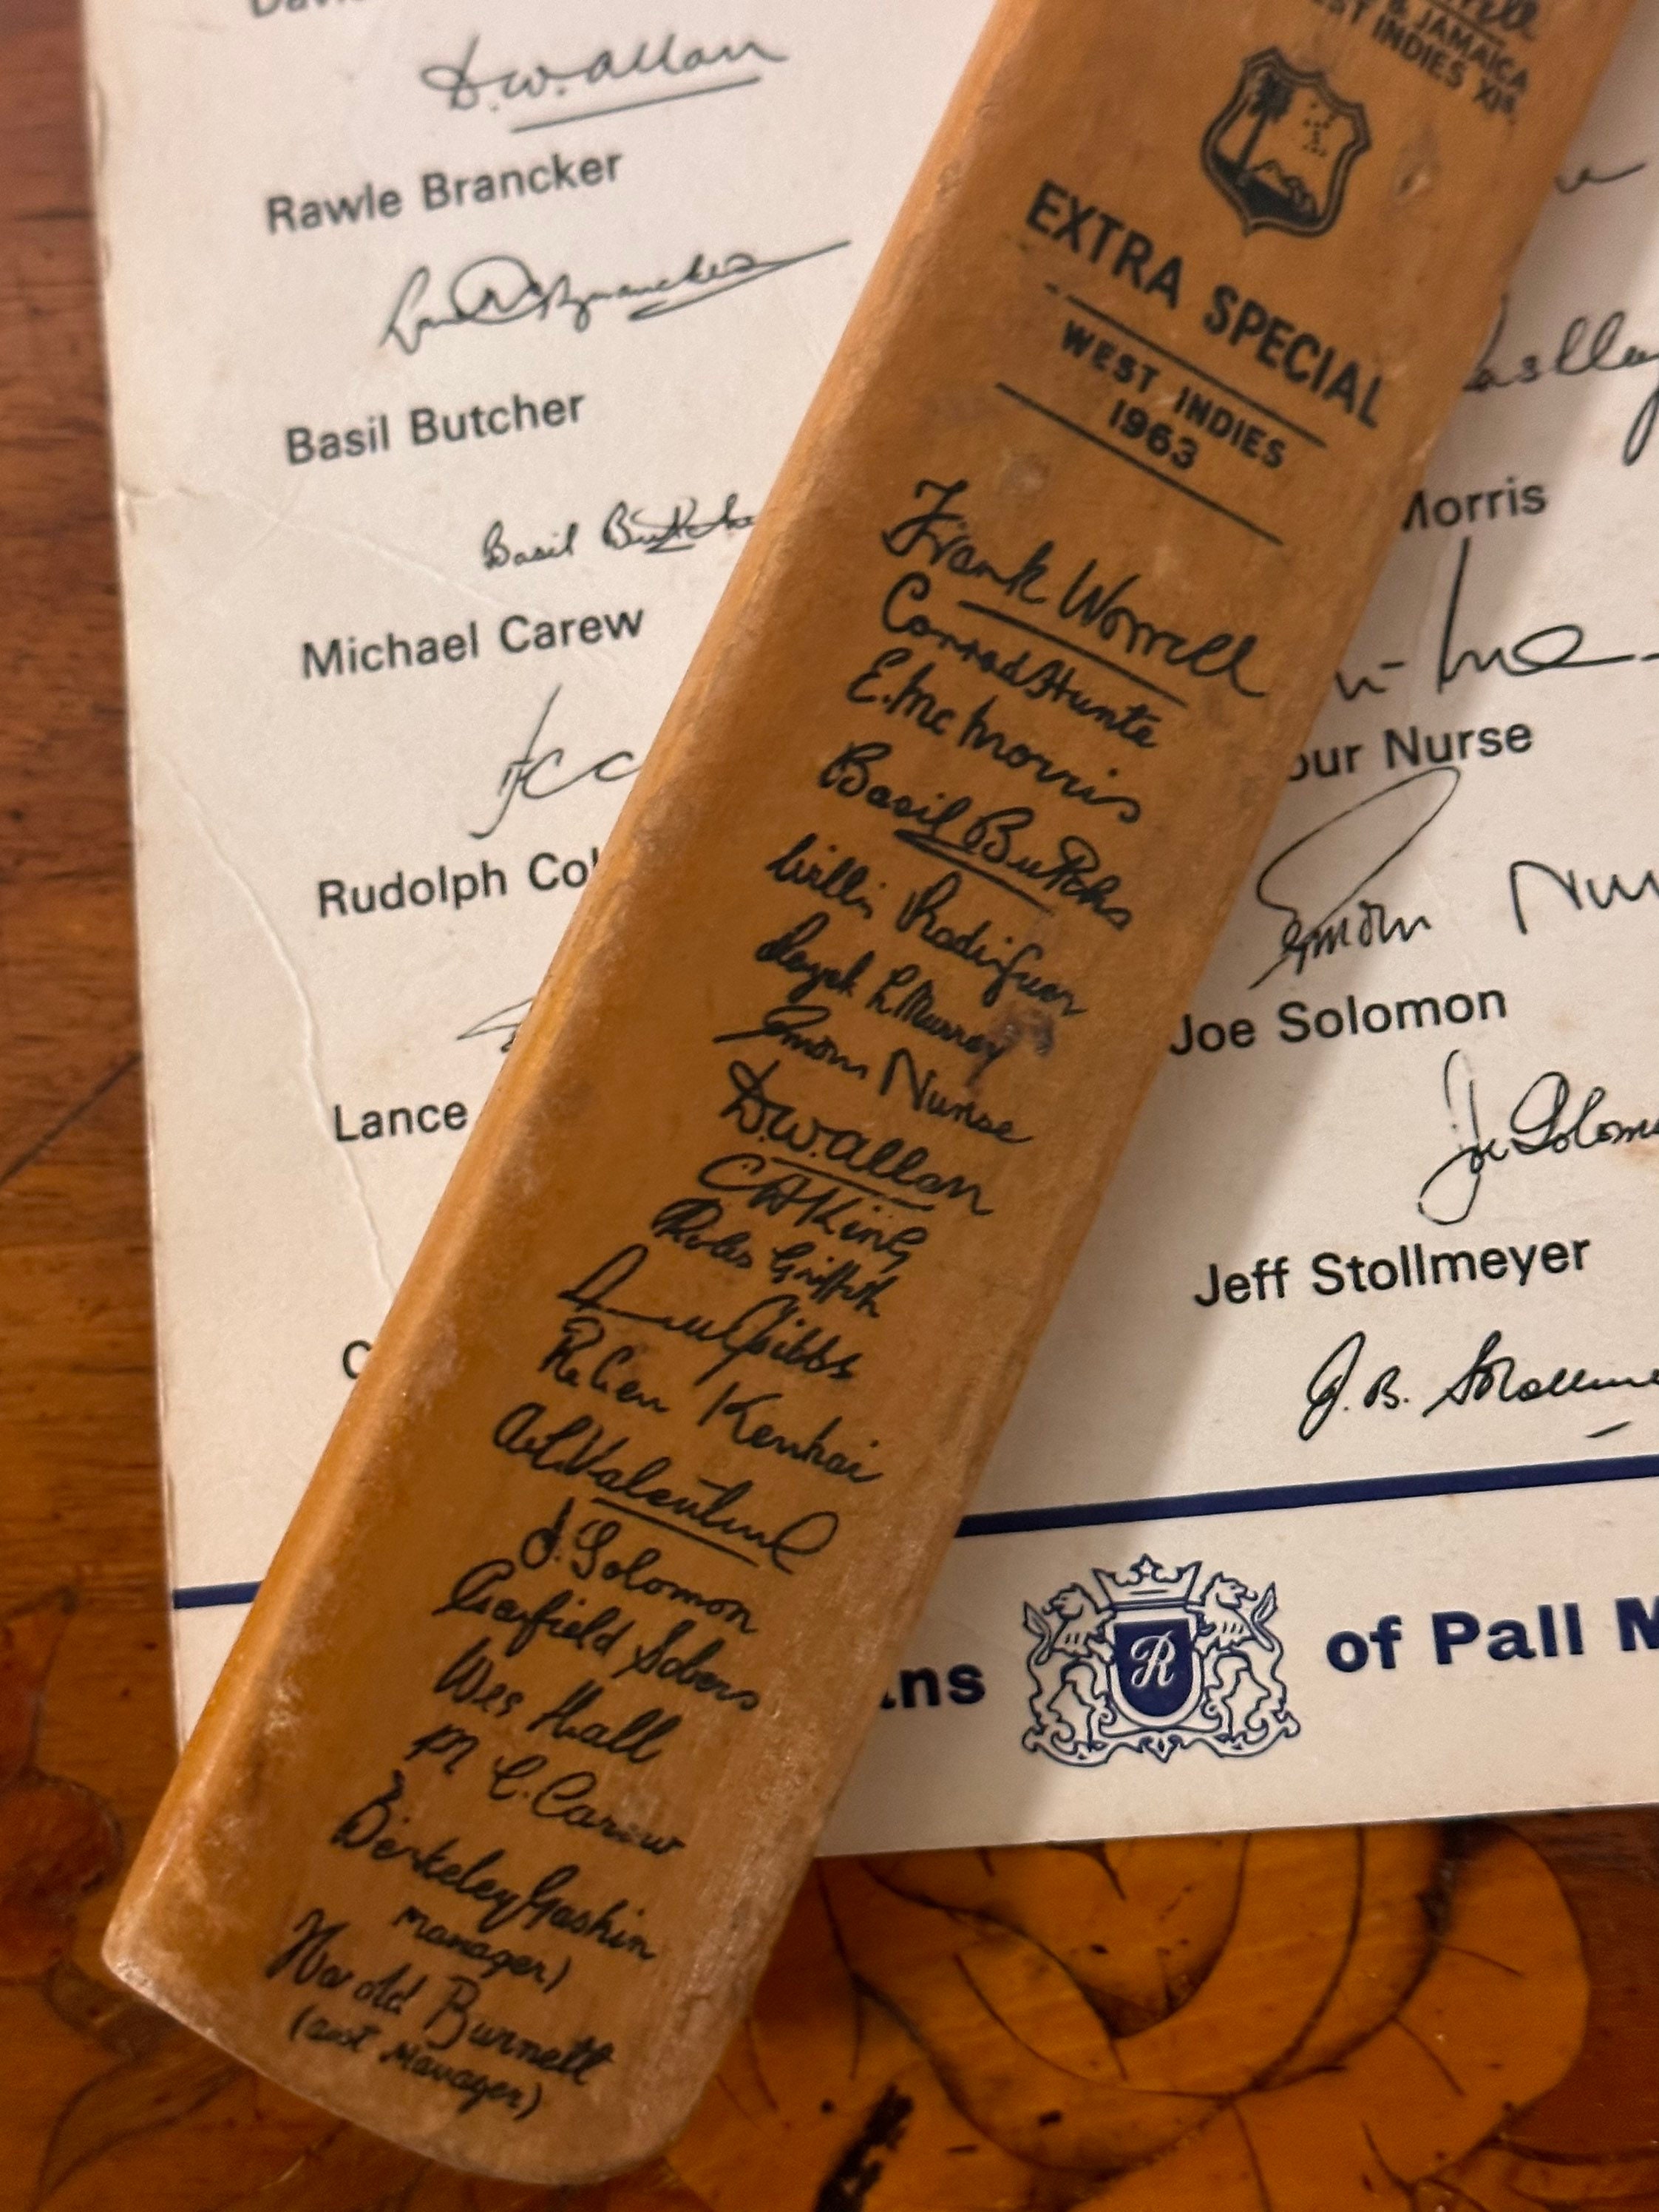 D.W. Allan
Rawle Brancker
Basil Butcher
Basil Butcher
Michael Carew
Rudolph Co
Lance
C
& JAMAICA
EST INDIES XIs
EXTRA SPECIAL
WEST INDIES
1963
Frank Worrell
Conrad Hunte
E. Mc Morris
Basil Butcher
Willie Rodriguez
Deryck L Murray
Seymour Nurse
D.W. Allan
C A King
Charles Griffith
Gibbs
Rohan Kanhai
A L Valentine
J. Solomon
Garfield Sobers
Wes Hall
M C. Carew
Berkeley Gaskin
manager)
Harold Burnett
(asst manager)
Morris
our Nurse
Seymour Nur
Joe Solomon
Joe Solomo
Jeff Stollmeyer
J. B. Stollme
ans
R
of Pall M